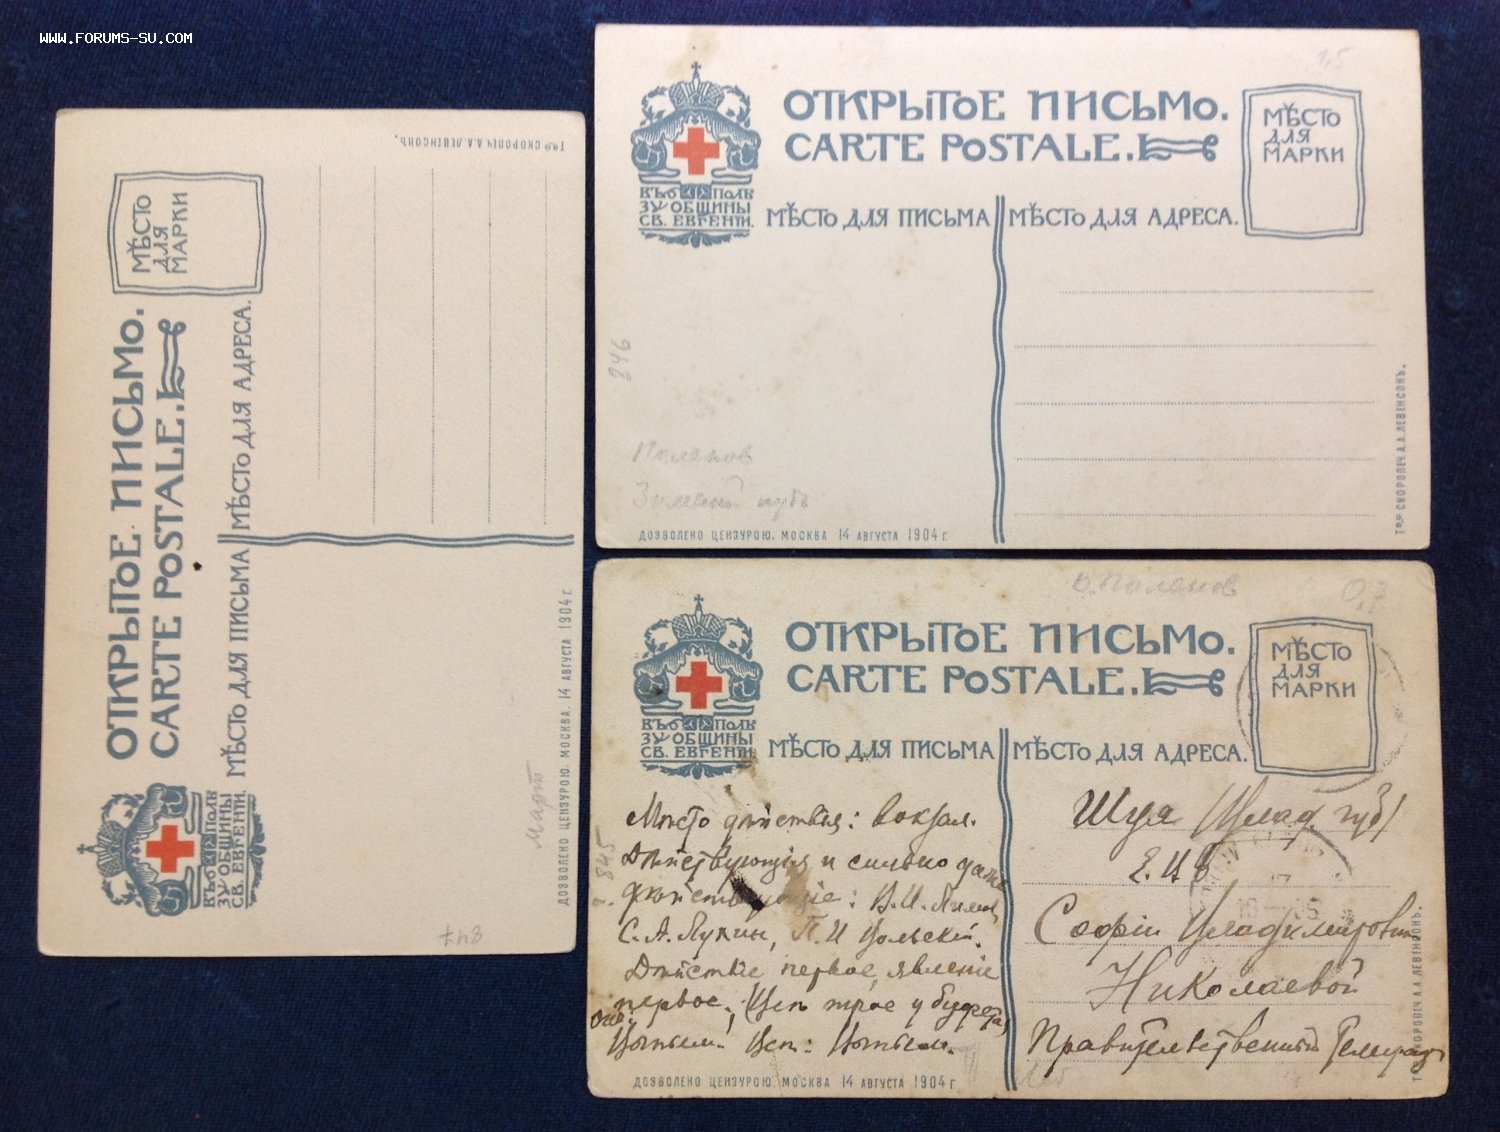 WWW.FORUMS-SU.COM
Т-ВО СКОРОПЕЧ. А.А. ЛЕВЕНСОНЪ.
МѢСТО
ДЛЯ
МАРКИ
ОТКРЫТОЕ ПИСЬМО.
CARTE POSTALE.
МѢСТО ДЛЯ ПИСЬМА
МѢСТО ДЛЯ АДРЕСА.
ВЪ ПОЛЬ
ЗУ ОБЩИНЫ
СВ. ЕВГЕНІИ.
ДОЗВОЛЕНО ЦЕНЗУРОЮ. МОСКВА. 14 АВГУСТА 1904 г.
Март
847
1,5
ОТКРЫТОЕ ПИСЬМО.
CARTE POSTALE.
МѢСТО
ДЛЯ
МАРКИ
ВЪ ПОЛЬ
ЗУ ОБЩИНЫ
СВ. ЕВГЕНІИ.
МѢСТО ДЛЯ ПИСЬМА
МѢСТО ДЛЯ АДРЕСА.
846
Поленов
Зимний путь
ДОЗВОЛЕНО ЦЕНЗУРОЮ. МОСКВА 14 АВГУСТА 1904 г.
Т-ВО СКОРОПЕЧ. А.А. ЛЕВЕНСОНЪ.
В. Поленов
0,7
ОТКРЫТОЕ ПИСЬМО.
CARTE POSTALE.
МѢСТО
ДЛЯ
МАРКИ
ВЪ ПОЛЬ
ЗУ ОБЩИНЫ
СВ. ЕВГЕНІИ.
МѢСТО ДЛЯ ПИСЬМА
МѢСТО ДЛЯ АДРЕСА.
845
Мѣсто дѣйствія: вокзал.
Дѣйствующія и сильно даже
дѣйствующіе: В.И.
С. А. Лукин, П. И
Дѣйствіе первое, явленіе
первое. Всѣ трое у буфета
Шуя (Влад. губ)
Е. В. В
Софіи Владимировнѣ
Николаевой
Правительственный Телеграф
ДОЗВОЛЕНО ЦЕНЗУРОЮ. МОСКВА 14 АВГУСТА 1904 г.
Т-ВО СКОРОПЕЧ. А.А. ЛЕВЕНСОНЪ.